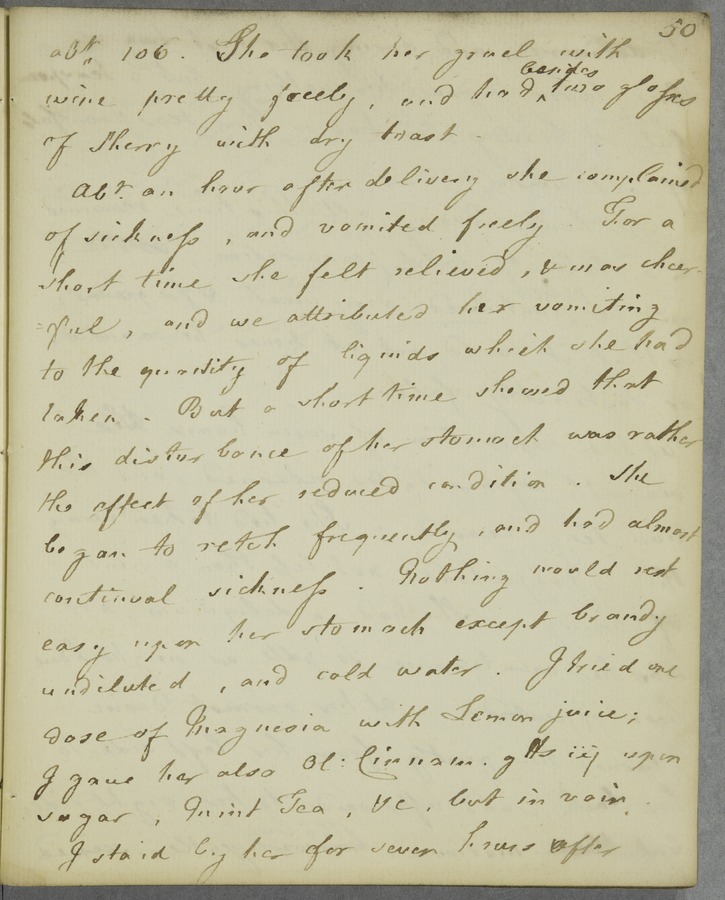 50
abt. 106. She took her gruel with
besides
wine pretty freely, and had ‸ two glasses
of Sherry with dry toast.
Abt. an hour after delivery she complained
of sickness, and vomited freely. For a
short time she felt relieved, & was cheer-
=ful, and we attributed her vomiting
to the quantity of liquids which she had
taken. But a short time shewed that
this disturbance of her stomach was rather
the effect of her reduced condition. She
began to retch frequently, and had almost
continual sickness. Nothing would rest
easy upon her stomach except brandy
undiluted, and cold water. I tried one
dose of Magnesia with Lemon juice;
I gave her also Ol: Cinnam. gtts iij upon
sugar, Mint Tea, &c, but in vain.
I staid by her for seven hours after